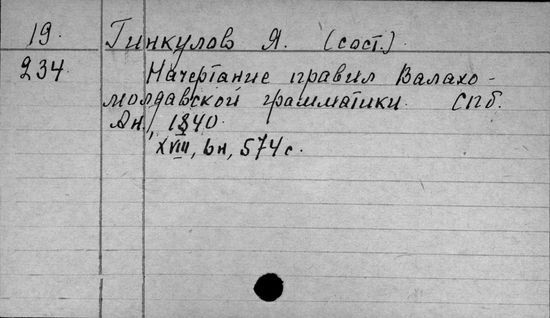 19. Гинкулов Я. (сост.)
234. Начертание правил Валахо-
молдавской грамматики. СПб.
Ан., 1840
XVIII, 6н, 574 с.